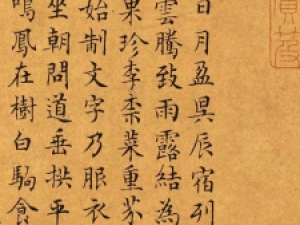 日月盈昃辰宿列
雲騰致雨露結為
果珍李柰菜重芥
始制文字乃服衣
坐朝問道垂拱平
鳴鳳在樹白駒食